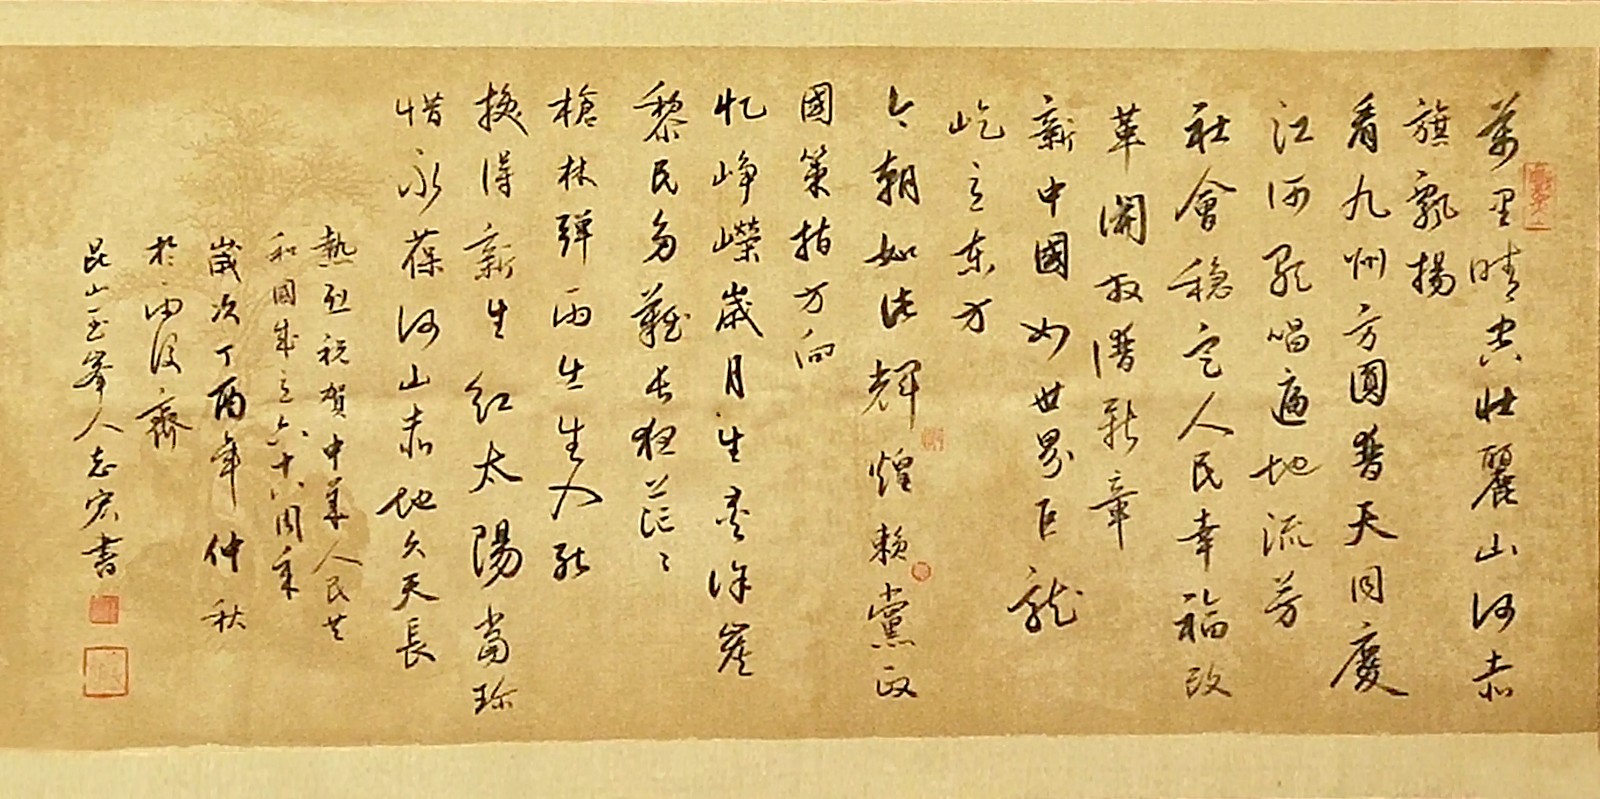 萬里晴空壮麗山河赤
旗飄揚
看九州方圓普天同慶
江河歌唱遍地流芳
社會穩定人民幸福改
革開放譜新章
新中國如世界巨龍
屹立东方
今朝如此輝煌賴黨政
國策指方向
忆崢嶸歲月
黎民多難長夜茫々
槍林弹雨生生入死
換得新生红太陽當珍
惜永葆河山赤地久天長
熱烈祝賀中華人民共
和國成立六十八周年
歲次丁酉年仲秋
於
齋
昆山玉峯人志宏書